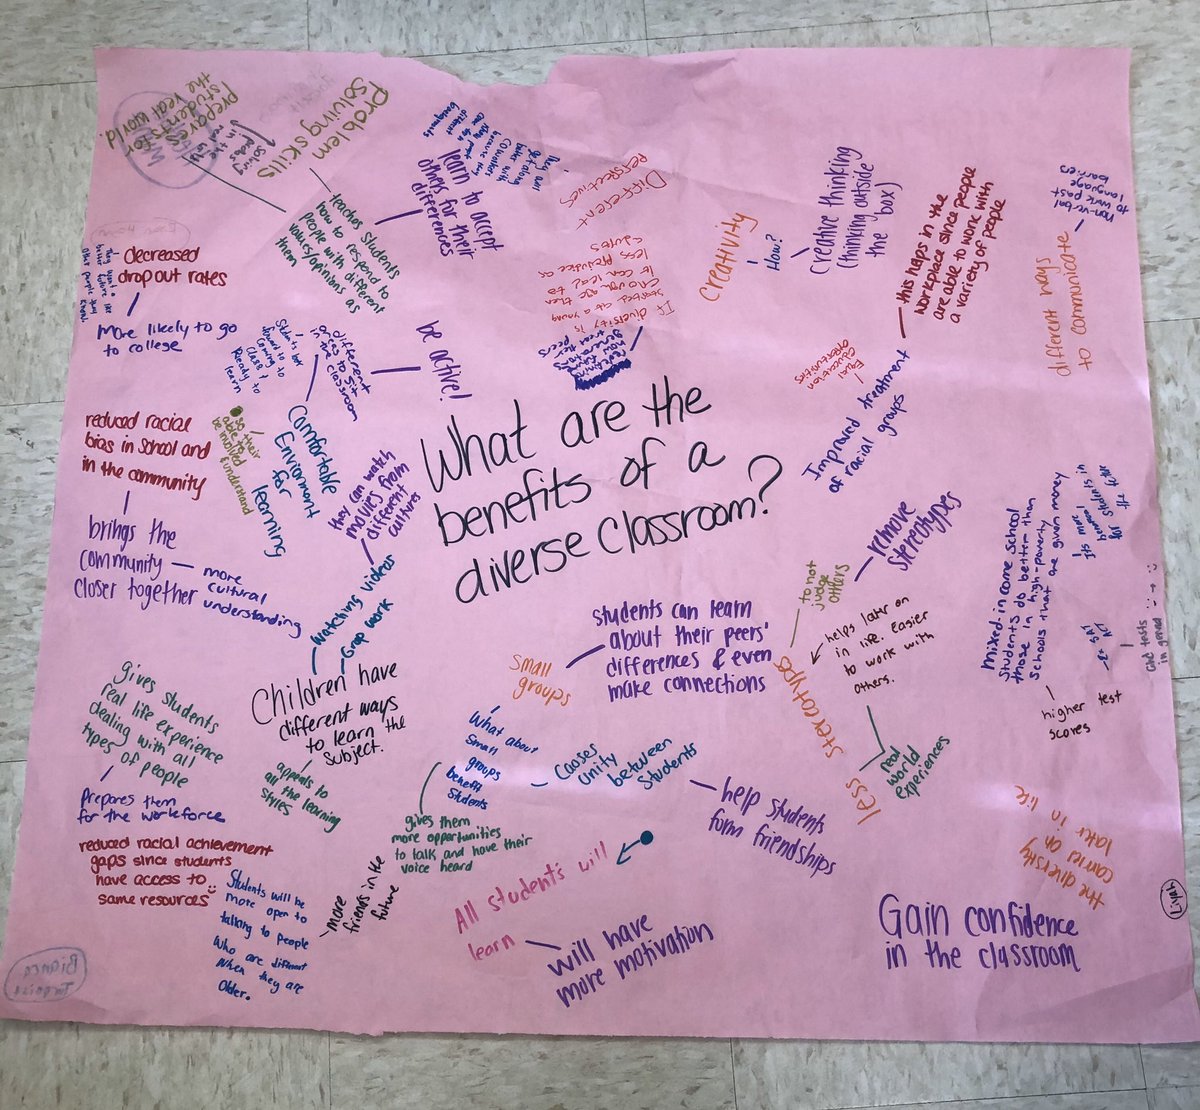 What are the
benefits of a
diverse classroom?
prepares
students for
the real world
Problem
solving skills
teaches students
how to respond to
people with different
values/opinions as
them
learn to accept
others for their
differences
they will
get along
better with
coworker
because they
may
are
different
backgrounds
Different
perspectives
If diversity is
started at a young
enough age then
it can lead to
less prejudice as
adults
creativity
How?
creative thinking
(thinking outside
the box)
this haps in the
workplace since people
are able to work with
a variety of people
Improved treatment
of racial groups
Equal
education
opportunities
non-verbal
to work past
language
barriers
different ways
to communicate
decreased
drop out rates
More likely to go
to college
be active!
different
areas to sit
in the classroom
Comfortable
Enviornment
for
learning
Ready to
learn
so their
able to
be involved
& understand
reduced racial
bias in school and
in the community
brings the
community
closer together
more
cultural
understanding
they can watch
movies from
different
cultures
watching videos
Group work
Children have
different ways
to learn the
subject.
appeals to
all the learning
styles
gives students
real life experience
dealing with all
types of people
Prepares them
for the workforce
reduced racial achievement
gaps since students
have access to
same resources
Students will be
more open to
talking to people
who are different
when they are
older.
more
friends in the
future
gives them
more opportunities
to talk and have their
voice heard
What about
small
groups
benefit
students
small
groups
students can learn
about their peers'
differences & even
make connections
Causes
unity
between
students
help students
form friendships
All students will
learn
will have
more motivation
remove
stereotypes
to not
judge
others
less stereotypes
helps later on
in life. Easier
to work with
others.
real
world
experiences
Mixed-income school
students do better than
those in high-poverty
schools that are given money
higher test
scores
SAT
ACT
and tests
in general
Its more
for students in
the future
the diversity
carries on
later in life
Gain confidence
in the classroom
Liyah
Bianca